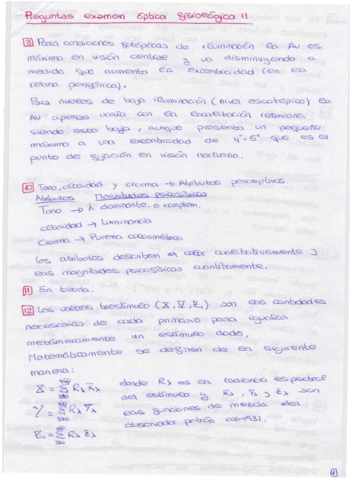 Preguntas examen óptica fisiológica II
9 Para condiciones fotópticas de iluminación la AV es
máximo en visión central y va disminuyendo a
medida que aumenta la excentricidad (en la
retina periférica).
Para niveles de baja iluminación (nivel escotópico) la
AV apenas varía con la excentricidad retiniana,
siendo esta baja, aunque presenta un pequeño
máximo a una excentricidad de 4°-5° que es el
punto de fijación en visión nocturna.
10 Tono, claridad y croma → Atributos perceptivos.
Atributos Magnitudes psicofísicas
Tono → λ dominante o complem.
claridad → Luminancia
Croma → Pureza colorimétrica
Los atributos describen el color cualitativamente y
las magnitudes psicofísicas cuantitamente.
11 En teoría.
12 Los valores triestímulo (X, Y, Z) son las cantidades
necesarias de cada primario para igualar
metaméricamente un estímulo dado.
Matemáticamente se definen de la siguiente
manera:
X = Σ Rλ x̄λ donde Rλ es la radiancia espectral
del estímulo y x̄λ, ȳλ y z̄λ son
Y = Σ Rλ ȳλ las funciones de mezcla del
observador patrón CIE-1931.
Z = Σ Rλ z̄λ